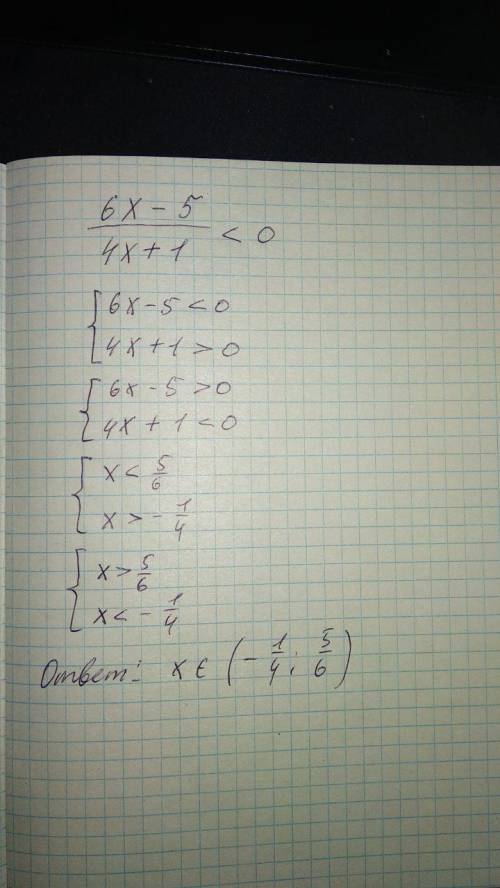 6x - 5
4x + 1 < 0
6x - 5 < 0
4x + 1 > 0
6x - 5 > 0
4x + 1 < 0
x < 5/6
x > - 1/4
x > 5/6
x < - 1/4
Ответ: x ∈ (- 1/4; 5/6)